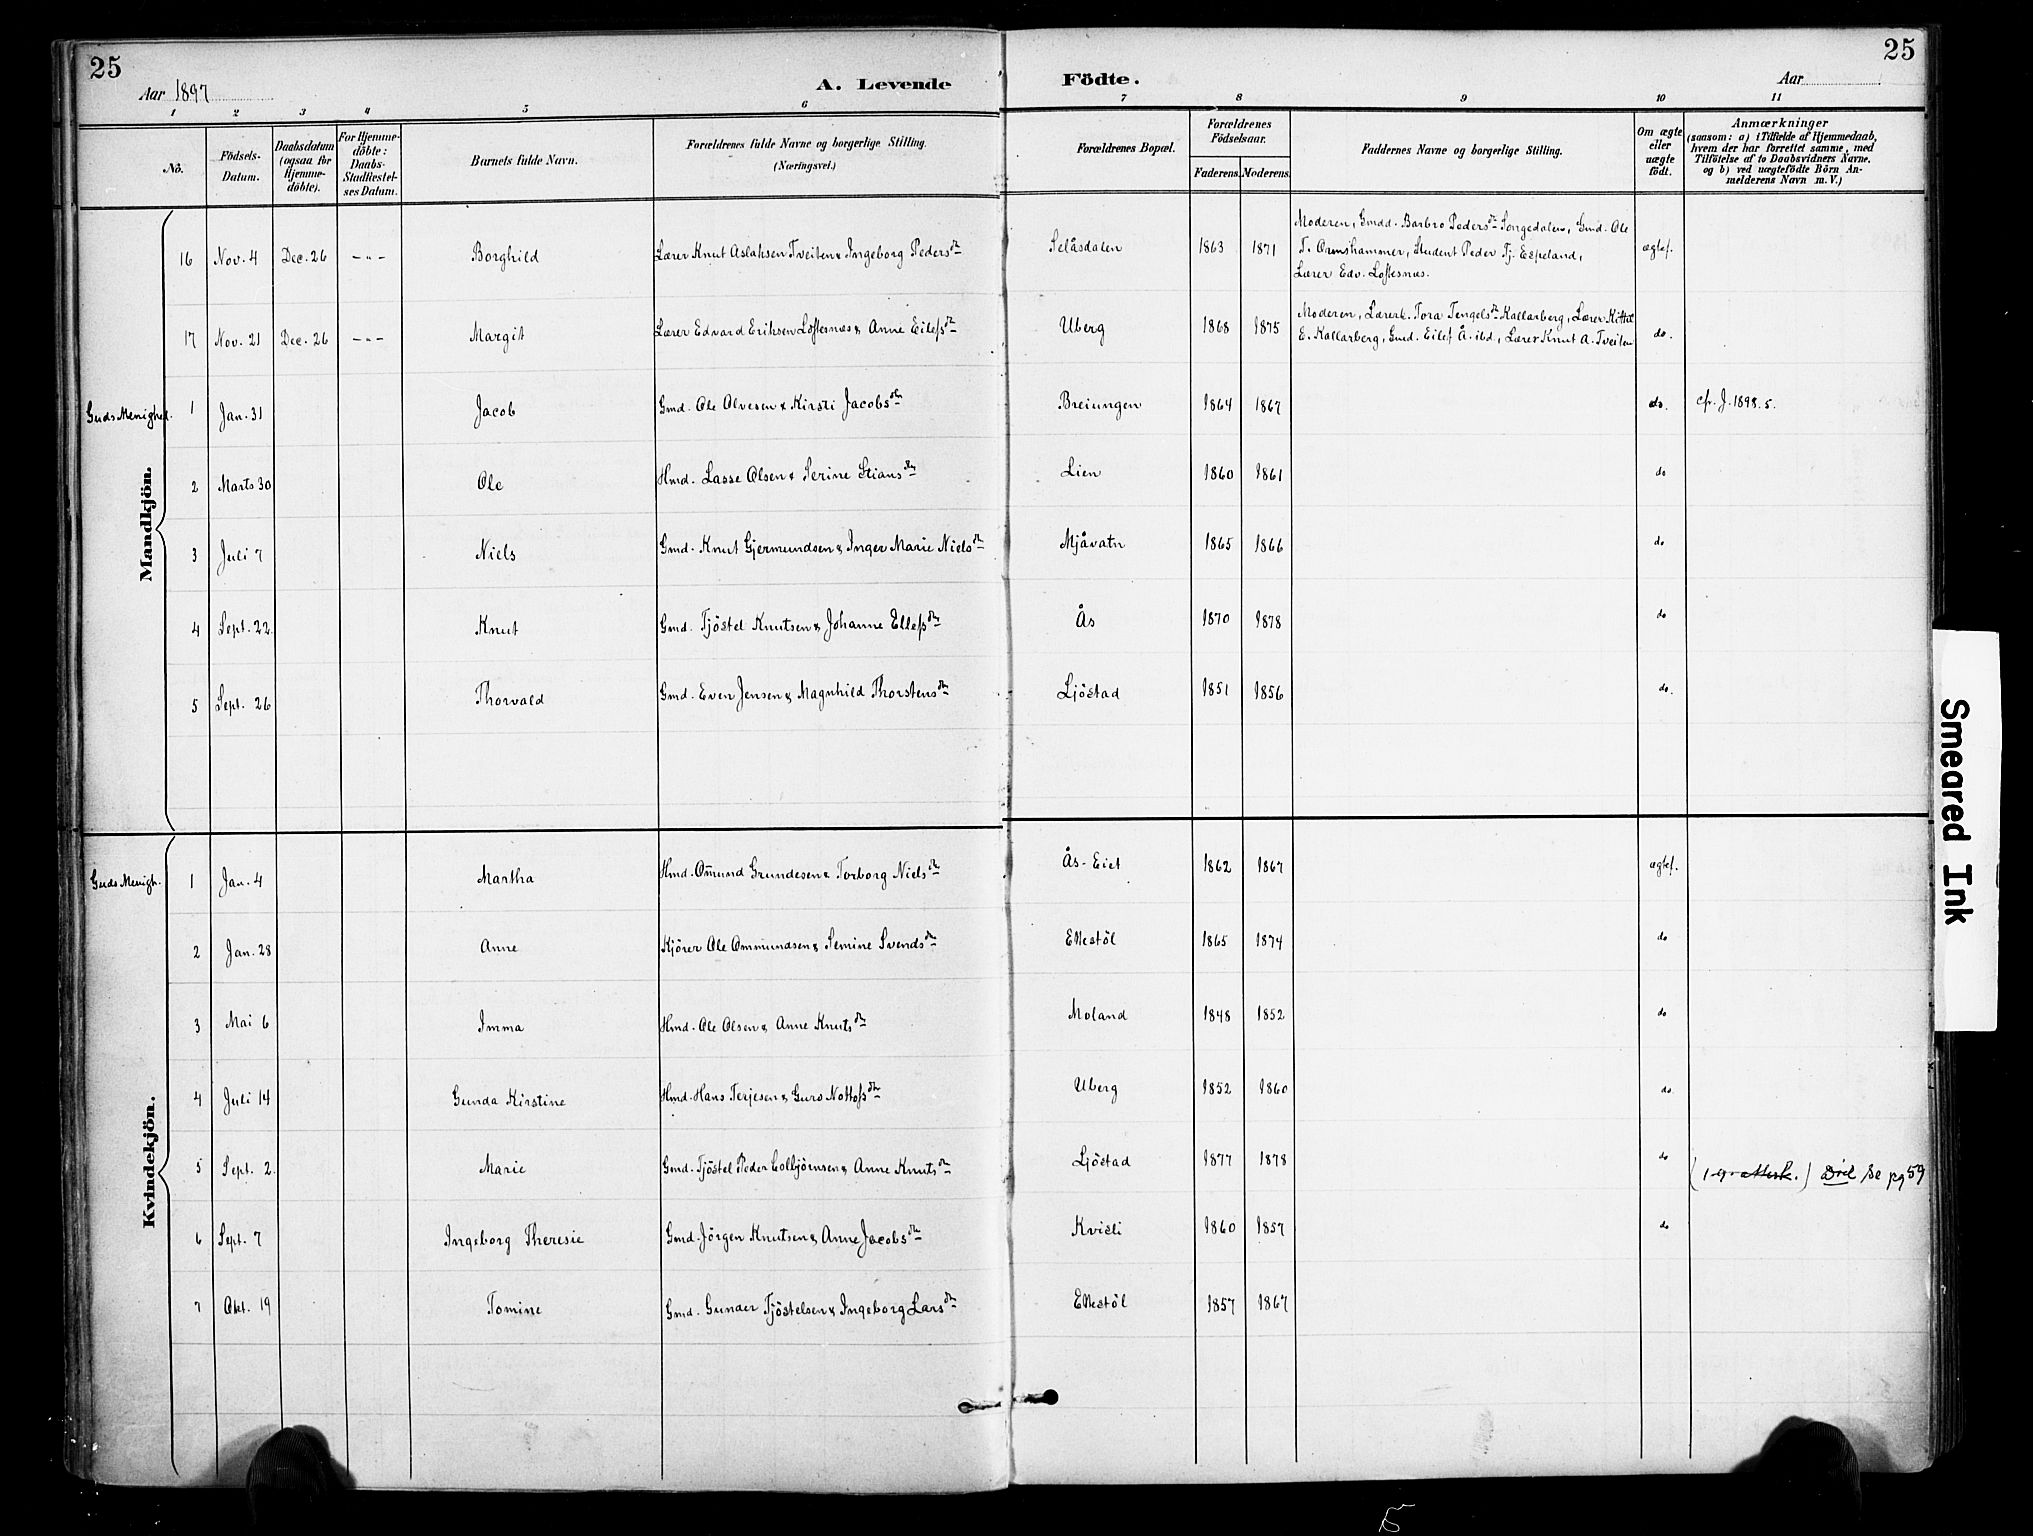 25
Aar 1897
A. Levende
Födte.
Aar
25
1 2 3 4 5 6 7 8 9 10 11
No.
Födsels-Datum.
Daabsdatum (ogsaa for Hjemme-döbte).
For Hjemme-döbte: Daabs-Stadfæstel-ses Datum.
Barnets fulde Navn.
Forældrenes fulde Navne og borgerlige Stilling. (Næringsvei.)
Forældrenes Bopæl.
Forældrenes Födselsaar.
Faderens. Moderens.
Faddernes Navne og borgerlige Stilling.
Om ægte eller uægte födt.
Anmærkninger
(saasom: a) i Tilfælde af Hjemmedaab,
hvem der har forrettet samme, med
Tilföielse af to Daabsvidners Navne,
og b) ved uægtefödte Börn An-
melderens Navn m. V.)
Mandkjön.
16 Nov. 4 Dec. 26 -"- Borghild Lærer Knut Aslaksen Tveiten & Ingeborg Pedersdtr Selåsdalen 1863 1871 Moderen, Gmdd. Barbro Pedersdtr Songedalen, Gmd. Ole
T. Ormshammer, Student Peder Tj. Espeland,
Lærer Edv. Loftesnæs. ægtef.
17 Nov. 21 Dec. 26 -"- Margit Lærer Edvard Eriksen Loftesnæs & Anne Eilefsdtr Uberg 1868 1875 Moderen, Lærerk. Tora Tengelsdtr Kallarberg, Lærer Kittel
E. Kallarberg, Gmd. Eilef Å. ibd., Lærer Knut A. Tveiten do.
Guds Menighed. 1 Jan. 31 Jacob Gmd. Ole Olvesen & Kirsti Jacobsdtr Breiungen 1864 1867 do. cfr. J. 1898. 5.
2 Marts 30 Ole Hmd. Lasse Olsen & Serine Stiansdtr Lien 1860 1861 do
3 Juli 7 Niels Gmd. Knut Gjermundsen & Inger Marie Nielsdtr Mjåvatn 1865 1866 do
4 Sept. 22. Knut Gmd. Tjöstel Knutsen & Johanne Ellefsdtr Ås 1870 1878 do
5 Sept. 26 Thorvald Gmd. Even Jensen & Magnhild Thorstensdtr Ljöstad 1851 1856 do.
Kvindekjön.
Guds Menigh. 1 Jan. 4 Martha Hmd. Omund Grundesen & Torborg Nielsdtr Ås-Eiet 1862 1867 ægtef.
2 Jan. 28 Anne Kjörer Ole Ommundsen & Semine Svendsdtr Ellestöl 1865 1874 do
3 Mai 6 Imma Hmd. Ole Olsen & Anne Knutsdtr Moland 1848 1852 do
4 Juli 14 Gunda Kirstine Hmd. Hans Terjesen & Guro Nottofsdtr Uberg 1852 1860 do
5 Sept. 2. Marie Gmd. Tjöstel Peder Colbjörnsen & Anne Knutsdtr Ljöstad 1877 1878 do Se pg 59
6 Sept. 7 Ingeborg Theresie Gmd. Jörgen Knutsen & Anne Jacobsdtr Kvisli 1860 1857 do
7 Okt. 19 Tomine Gmd. Gunder Tjöstelsen & Ingeborg Larsdtr Ellestöl 1857 1867
Smeared Ink
5